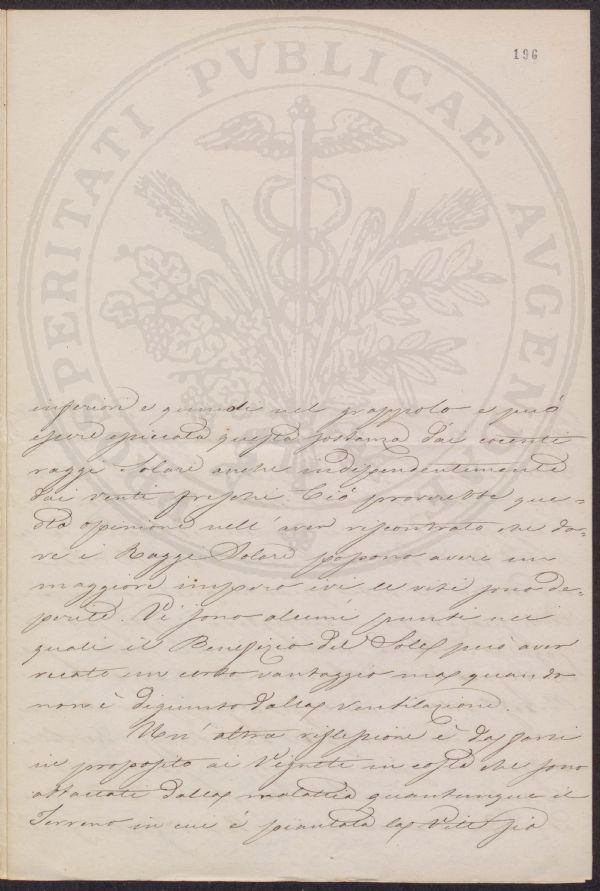 196
PROSPERITATI PVBLICAE AVGENDAE
inferiori e quindi nel grappolo e può
essere spiccata questa sostanza dai cocenti
raggi Solari anche indipendentemente
dai venti freschi. Ciò proverebbe que-
sta opinione nell'aver riscontrato che do-
ve i Raggi Solari possono avere un
maggiore impero ivi le viti sono de-
perite. Vi sono alcuni punti nei
quali il Benefizio del Sole può aver
recato un certo vantaggio ma quando
non è digiunto dalla ventilazione.
Un'altra riflessione è da farsi
in proposito ai Vigneti in costa che sono
attaccate dalla malattia quantunque il
Terreno in cui è piantata la Vite sia